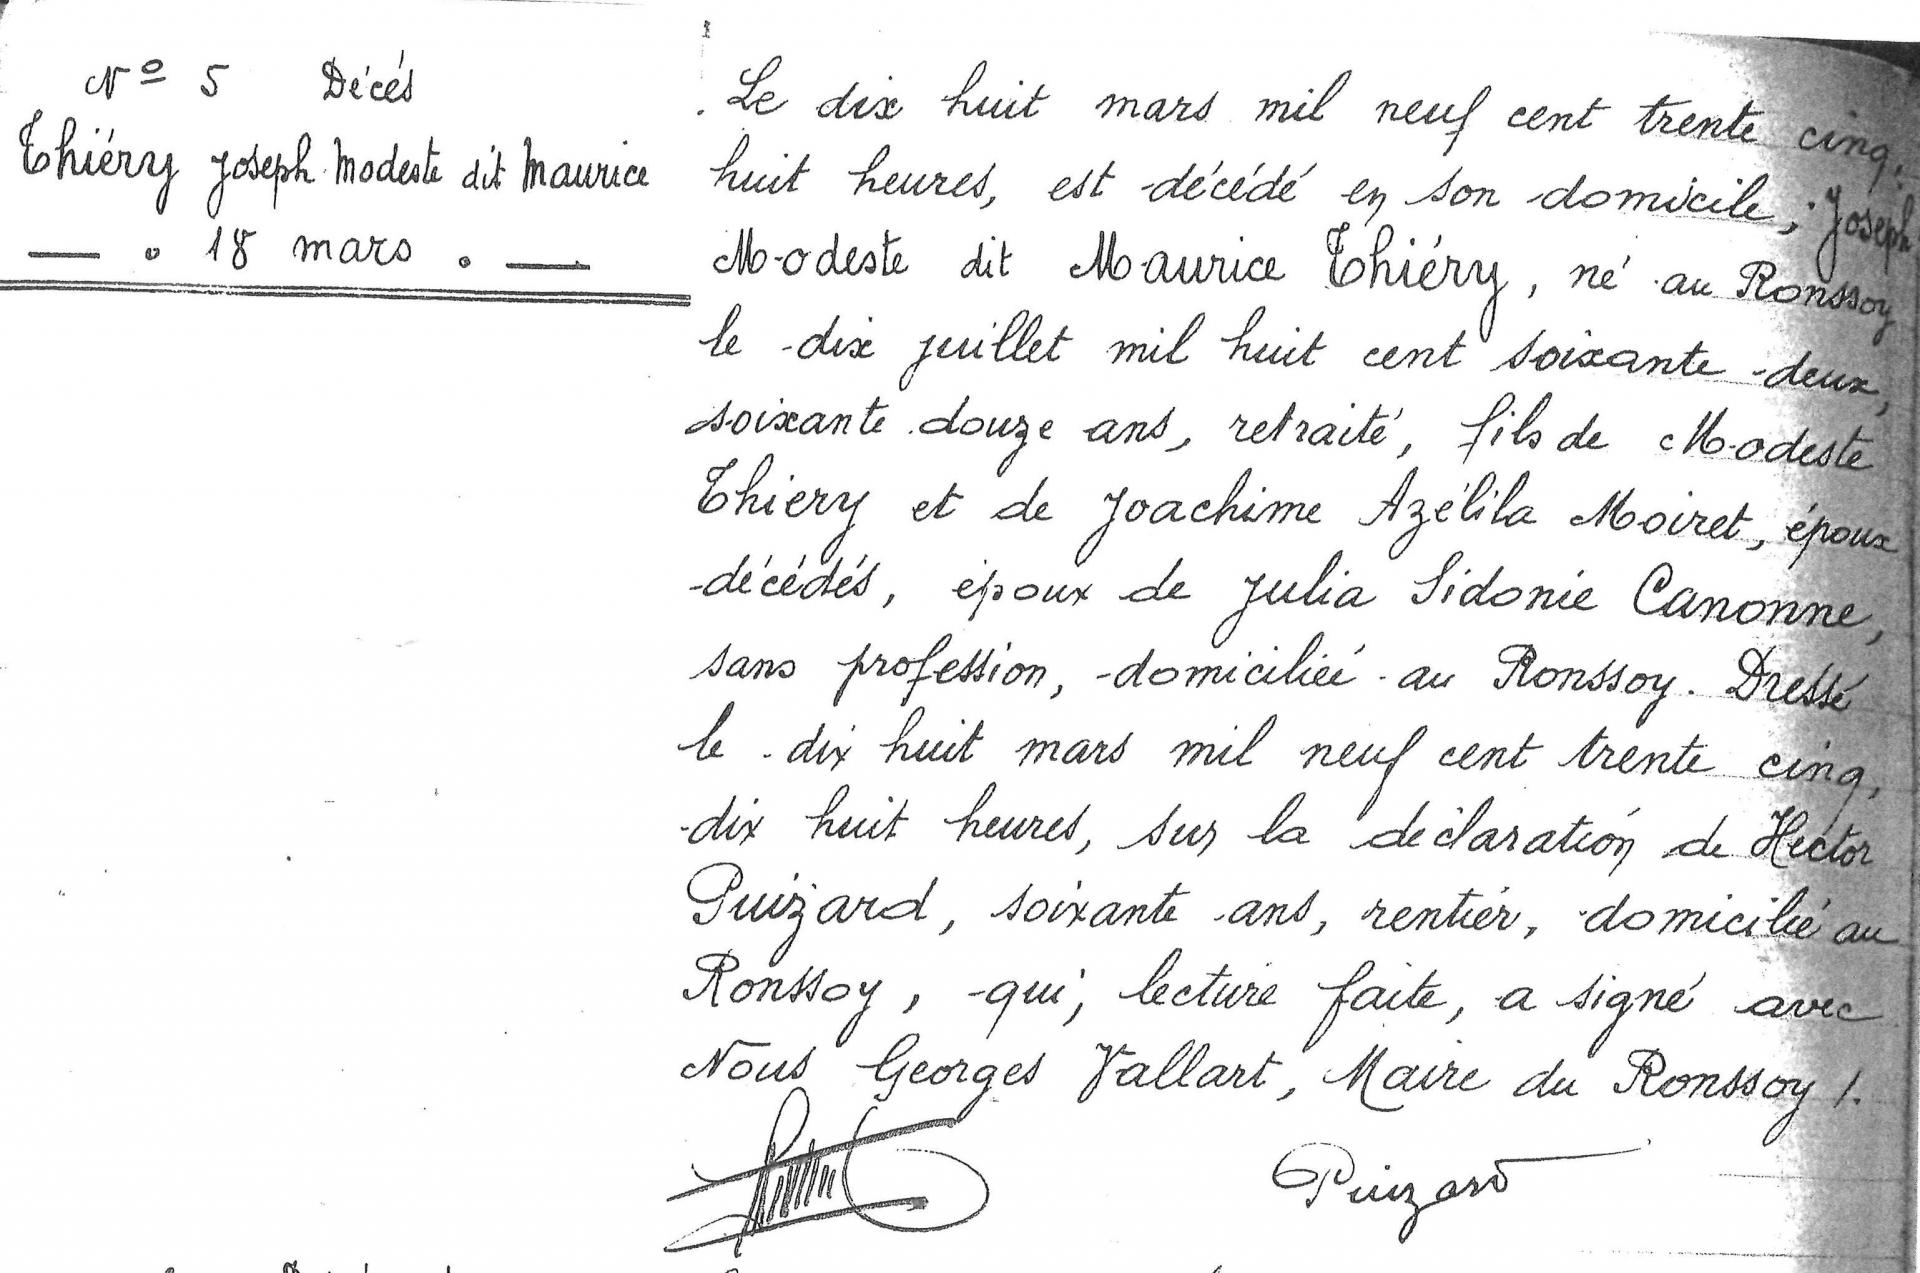 Nº 5 Décés
Thiéry Joseph Modeste dit Maurice
18 mars.
Le dix huit mars mil neuf cent trente cinq,
huit heures, est décédé en son domicile, Joseph
Modeste dit Maurice Thiéry, né au Ronssoy
le dix juillet mil huit cent soixante deux,
soixante douze ans, retraité, fils de Modeste
Thiery et de Joachime Azélila Moiret, époux
décédés, époux de Julia Sidonie Canonne,
sans profession, domiciliée au Ronssoy. Dressé
le dix huit mars mil neuf cent trente cinq,
dix huit heures, sur la déclaration de Hector
Puizard, soixante ans, rentier, domicilié au
Ronssoy, qui, lecture faite, a signé avec
Nous Georges Vallart, Maire du Ronssoy /.
Puizard